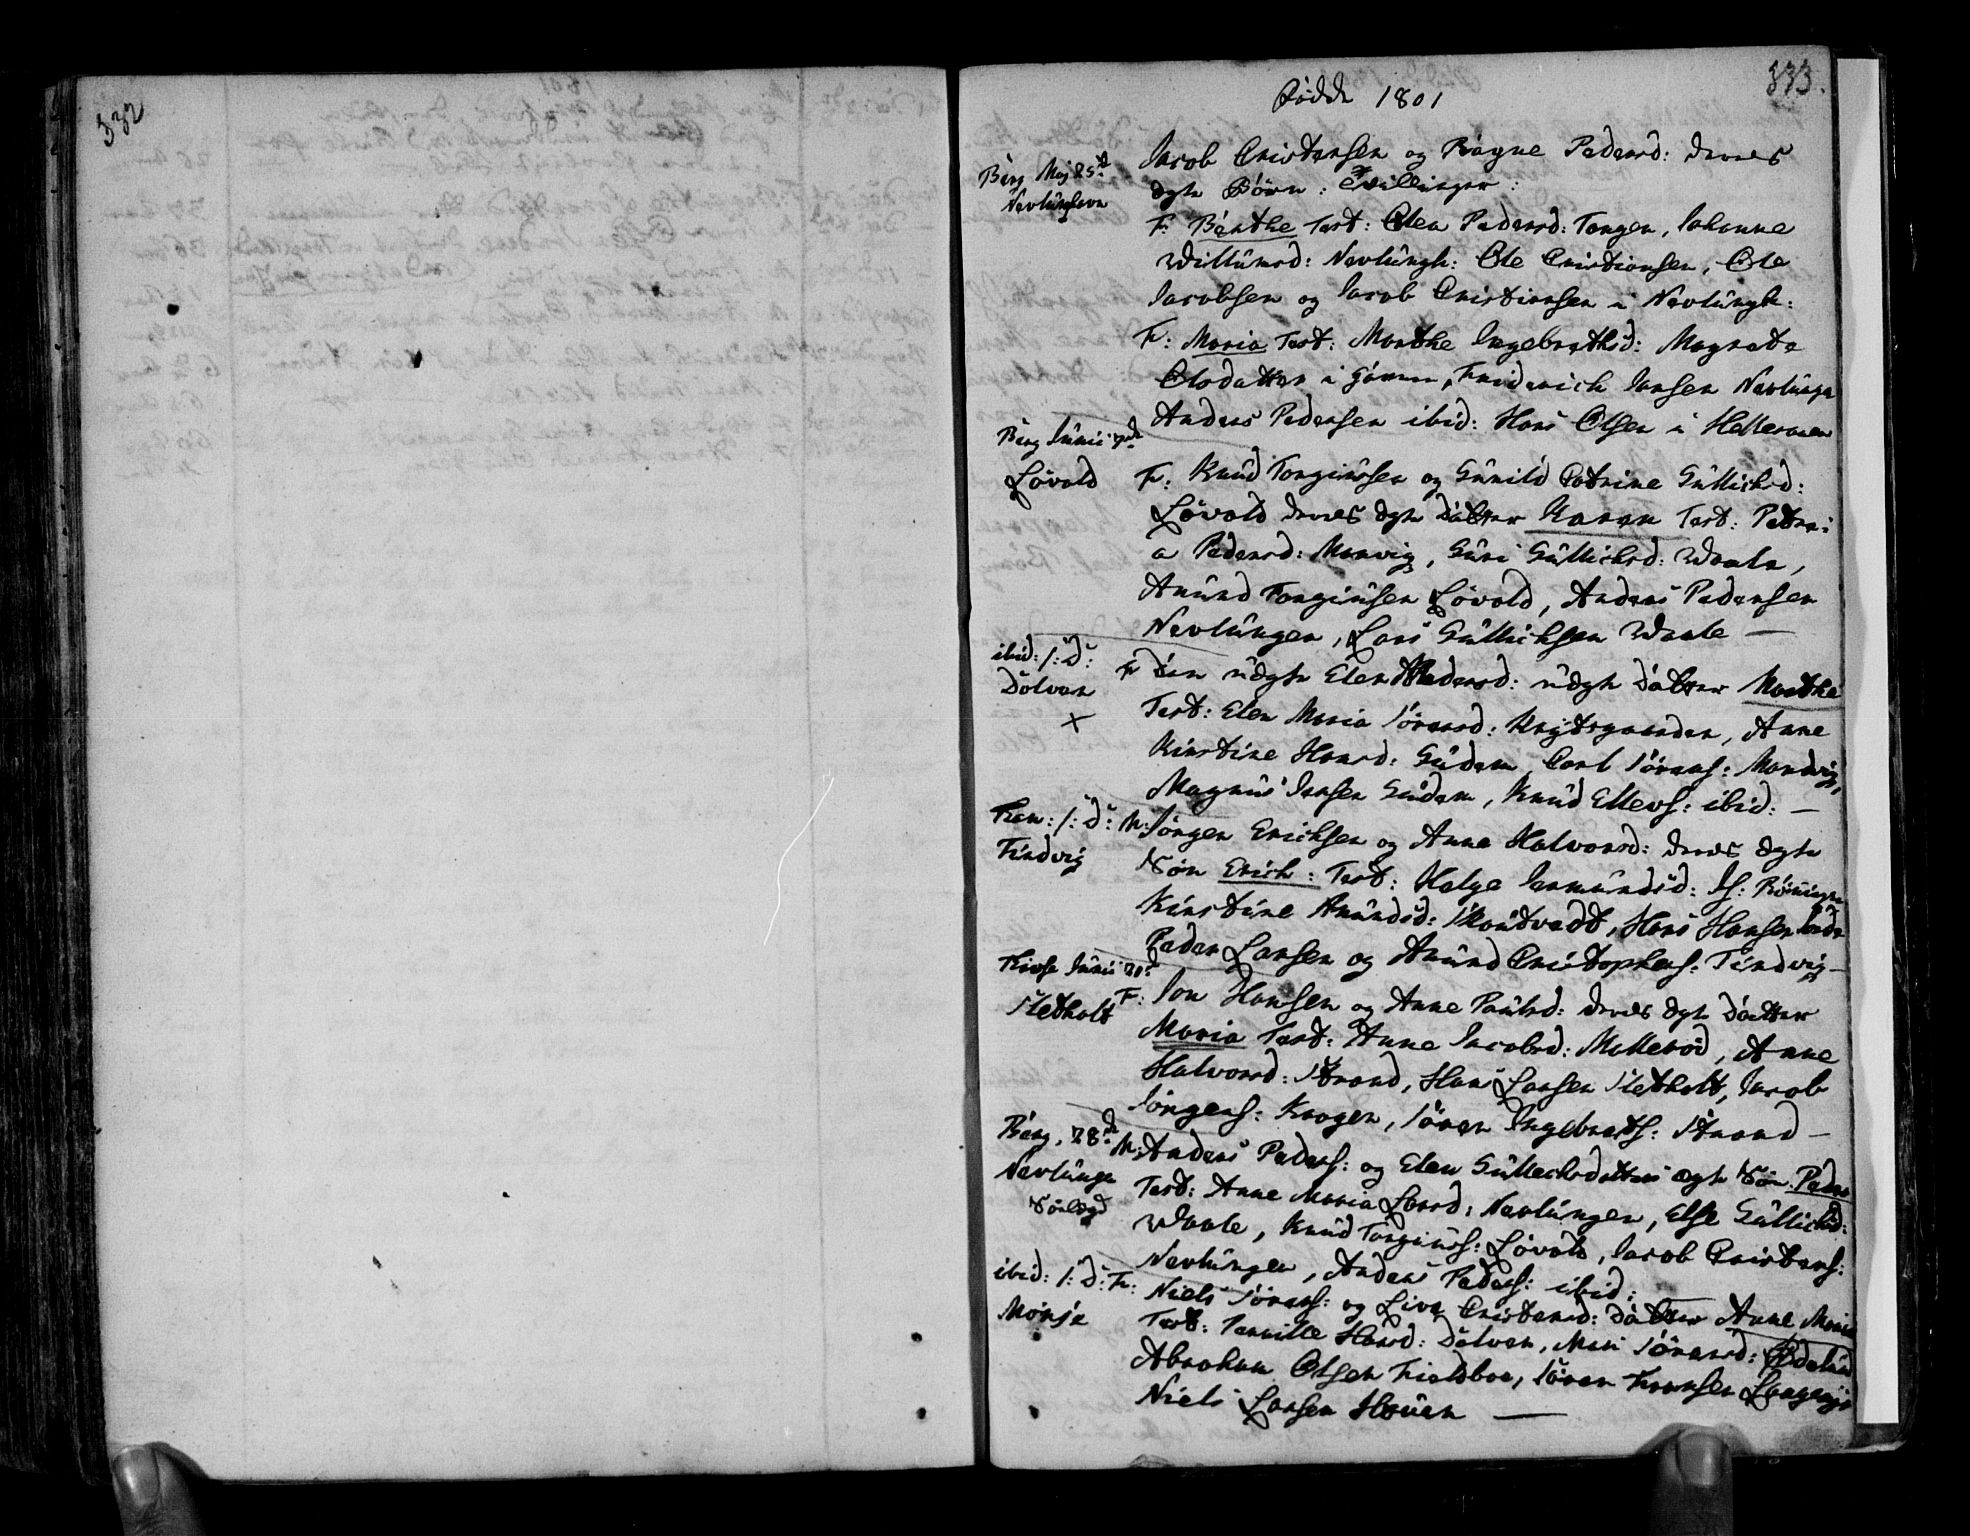 332
333.
Födde 1801
Berg Maj 25de
Nevlunghavn
Jacob Cristensen og Ragne Pedersd: deres
ægte Börn: Tvillinger:
F: Berthe Test: Elen Pedersd: Tangen, Johanne
Willumsd: Nevlungh: Ole Cristiansen, Ole
Jacobsen og Jacob Cristiansen i Nevlungh:
F: Maria Test: Marthe Ingebrethsd: Magrete
Olsdatter i Friderich Jansen Nevlunge
Anders Pedersen ibid: Hans Olsen i
Berg Junii
Lövald
F: Knud Torgiussen og Gunild Catrine Gullichsd:
Lövald deres ægte Datter Karen Test: Petri-
a Pedersd: Manvig, Guri Gullichsd: Waale,
Amund Torgiusen Lövald, Anders Pedersen
Nevlungen, Lars Gullichsen Waale —
ibid: s: d:
Dolven
+
F den uægte Elen Pedersd: uægte Datter Marthe
Test: Elen Maria Sörensd: Anne
Kirstine Hansd: Gudem, Carl Sörens: Mandvig,
Magnus Jensen Gudem, Knud Ellefs: ibid: —
s: d: M:
Tindvig
Jörgen Erichsen og Anne Halvorsd: deres ægte
Sön Erich: Test: Helge Jermundsd:
Kirstine Amundsd: Hans Hansen
Peder Larsen og Amund Cristophers: Tindvig —
Junii 21de
Sletholt
F: Jon Hansen og Anne Paulsd: deres ægte Datter
Maria Test: Anne Jacobsd: Melleröd, Anne
Halvorsd: Strand, Hans Larsen Sletholt, Jacob
Jörgens: Krogen, Sören Ingebreths: Strand —
Berg, 28de M:
Nevlunge
Anders Peders: og Elen Gullichsdatters ægte Sön Peder
Test: Anne Maria Larsd: Nevlungen, Else Gullichsd:
Waale, Knud Torgiuss: Lövald, Jacob Cristens:
Nevlungen, Anders Peders: ibid:
ibid: s: d: F:
Mörje
Niels Sörens: og Live Cristensd: Datter Anne Maria
Test: Pernille Hansd: Dolven, Mari Sörensd:
Abraham Olsen Fieldboe, Sören Fransen
Niels Larsen Hauen —